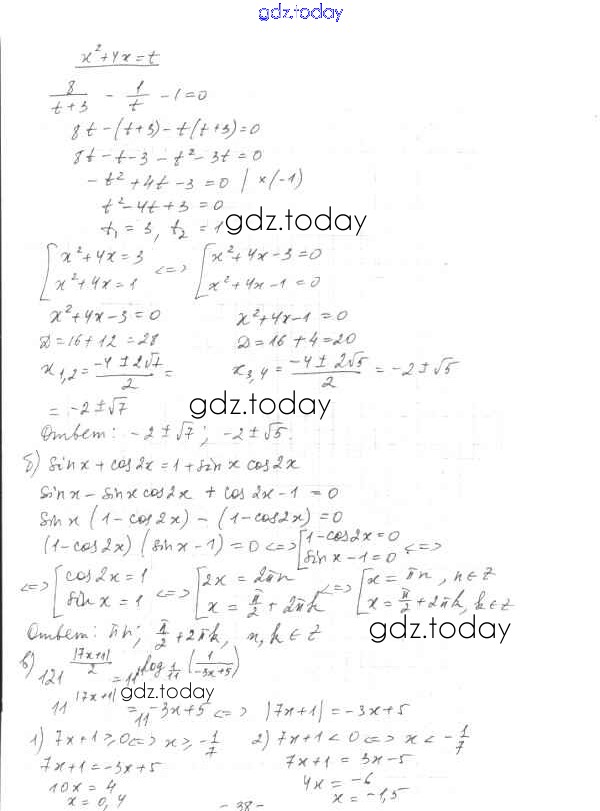 gdz.today
x²+4x=t
8/(t+3) - 1/t - 1=0
8t-(t+3)-t(t+3)=0
8t-t-3-t²-3t=0
-t²+4t-3=0 | ×(-1)
t²-4t+3=0
t₁=3, t₂=1
gdz.today
[x²+4x=3 <=> [x²+4x-3=0
[x²+4x=1 [x²+4x-1=0
x²+4x-3=0 x²+4x-1=0
D=16+12=28 D=16+4=20
x₁,₂=(-4±2√7)/2= x₃,₄=(-4±2√5)/2=-2±√5
=-2±√7
gdz.today
Ответ: -2±√7; -2±√5.
б) sinx+cos2x=1+sinx cos2x
sinx-sinxcos2x+cos2x-1=0
sinx(1-cos2x)-(1-cos2x)=0
(1-cos2x)(sinx-1)=0 <=> [1-cos2x=0 <=>
[sinx-1=0
<=> [cos2x=1 <=> [2x=2πn <=> [x=πn, n∈Z
[sinx=1 [x=π/2+2πk [x=π/2+2πk, k∈Z
gdz.today
Ответ: πn; π/2+2πk, n,k∈Z
в) 121^(|7x+1|/2)=11^(log_(1/11)(1/(-3x+5)))
11^|7x+1|=11^(-3x+5) <=> |7x+1|=-3x+5
gdz.today
1) 7x+1≥0 <=> x≥-1/7 2) 7x+1<0 <=> x<-1/7
7x+1=-3x+5 7x+1=3x-5
10x=4 4x=-6
x=0,4 x=-1,5
-38-